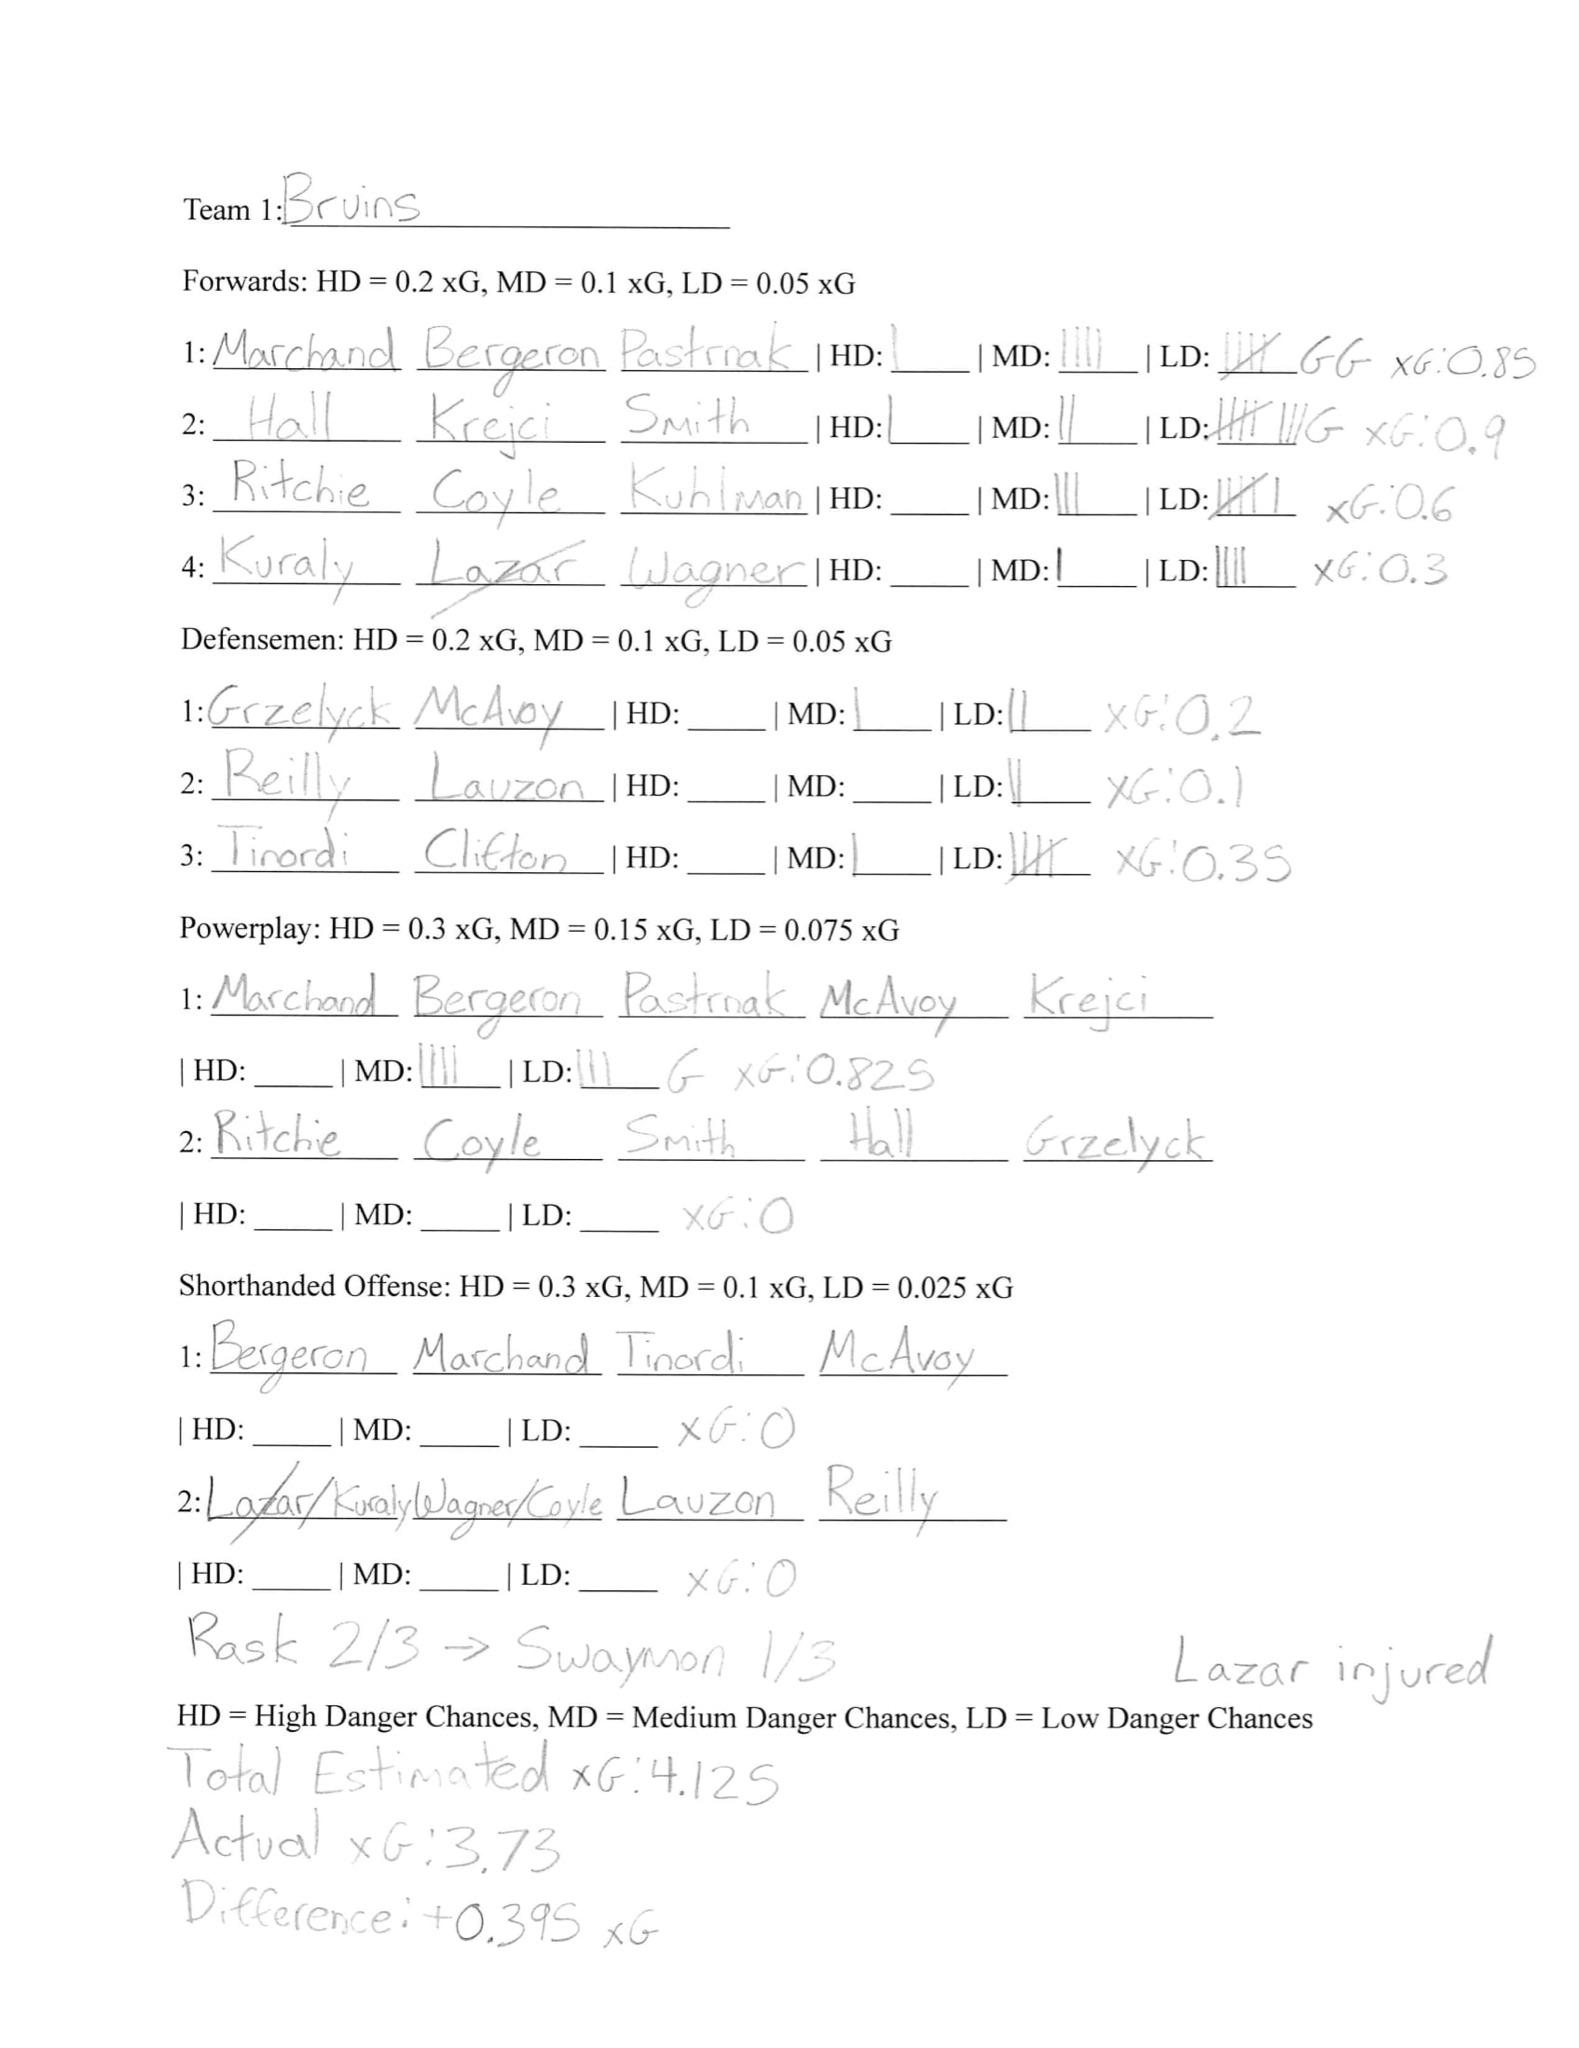 Team 1: Bruins
Forwards: HD = 0.2 xG, MD = 0.1 xG, LD = 0.05 xG
1: Marchand Bergeron Pastrnak | HD: | | MD: |||| | LD: 𝍸 GG xG: 0.85
2: Hall Krejci Smith | HD: | | MD: || | LD: 𝍸 ||| G xG: 0.9
3: Ritchie Coyle Kuhlman | HD: ____ | MD: ||| | LD: 𝍸 | xG: 0.6
4: Kuraly Lazar Wagner | HD: ____ | MD: | | LD: |||| xG: 0.3
Defensemen: HD = 0.2 xG, MD = 0.1 xG, LD = 0.05 xG
1: Grzelyck McAvoy | HD: ____ | MD: | | LD: || xG: 0.2
2: Reilly Lauzon | HD: ____ | MD: ____ | LD: || xG: 0.1
3: Tinordi Clifton | HD: ____ | MD: | | LD: 𝍸 xG: 0.35
Powerplay: HD = 0.3 xG, MD = 0.15 xG, LD = 0.075 xG
1: Marchand Bergeron Pastrnak McAvoy Krejci
| HD: ____ | MD: |||| | LD: ||| G xG: 0.825
2: Ritchie Coyle Smith Hall Grzelyck
| HD: ____ | MD: ____ | LD: ____ xG: 0
Shorthanded Offense: HD = 0.3 xG, MD = 0.1 xG, LD = 0.025 xG
1: Bergeron Marchand Tinordi McAvoy
| HD: ____ | MD: ____ | LD: ____ xG: 0
2: Lazar/Kuraly Wagner/Coyle Lauzon Reilly
| HD: ____ | MD: ____ | LD: ____ xG: 0
Rask 2/3 → Swaymon 1/3 Lazar injured
HD = High Danger Chances, MD = Medium Danger Chances, LD = Low Danger Chances
Total Estimated xG: 4.125
Actual xG: 3.73
Difference: +0.395 xG